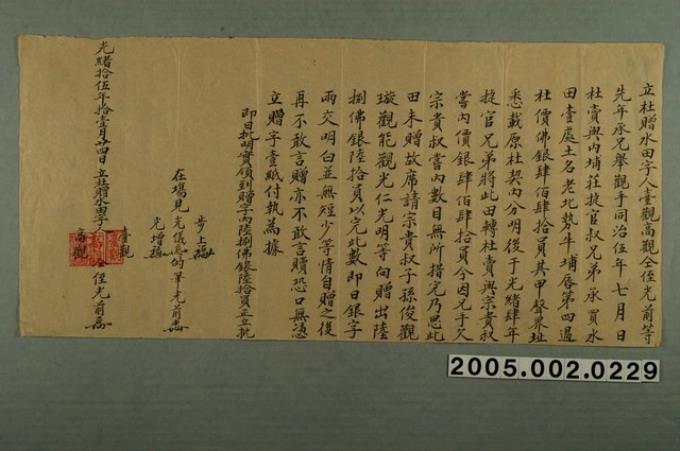 立杜贈水田字人臺觀高觀全侄光前等
先年承兄舉觀手同治伍年七月日
杜賣與內埔莊捷官叔兄弟承買水
田壹處土名老北勢牛埔唇第四過
杜價佛銀肆佰肆拾員其甲聲界址
悉載原杜契內分明後于光緒肆年
捷官兄弟將此田轉杜賣與宗貴叔
當內價銀肆佰肆拾員今因兄手欠
宗貴叔當內數目無所措完乃思此
田未贈故席請宗貴叔子孫俊觀
璇觀能觀光仁光明等向贈出陸
捌佛銀陸拾員以完此數即日銀字
兩交明白並無短少等情自贈之後
再不敢言贈亦不敢言贖恐口無憑
立贈字壹紙付執為據
即日批明實領到贈字內陸捌佛銀陸拾員正立批
步上
在場見光儀 的筆光前
光增
光緒拾伍年拾壹月廿四日立杜贈水田字人臺觀高觀全侄光前
2005.002.0229